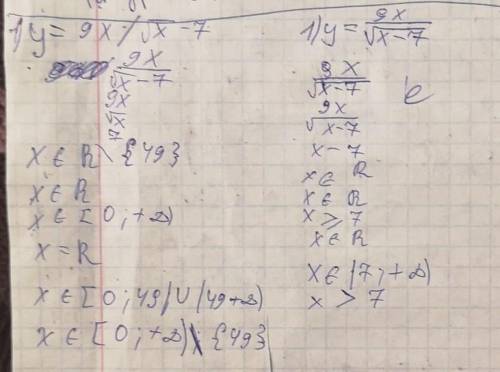 1) y = 9x / √x - 7
9x
√x - 7
9x
√x
7
x ∈ R \ {49}
x ∈ R
x ∈ [0; +∞)
x = R
x ∈ [0; 49) ∪ (49 +∞)
x ∈ [0; +∞) \ {49}
1) y = 9x / √x-7
9x
√x-7
9x
√x-7
x - 7
x ∈ R
x ∈ R
x ⩾ 7
x ∈ R
x ∈ (7; +∞)
x > 7